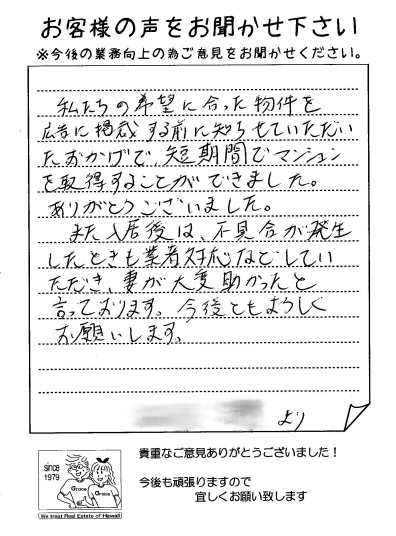 お客様の声をお聞かせ下さい
※今後の業務向上の為ご意見をお聞かせください。
私たちの希望に合った物件を
広告に掲載する前に知らせていただい
たおかげで、短期間でマンション
を取得することができました。
ありがとうございました。
また入居後は、不具合が発生
したときも業者対応などしてい
ただき、妻が大変助かったと
言っております。今後ともよろしく
お願いします。
より
貴重なご意見ありがとうございました！
今後も頑張りますので
宜しくお願い致します
since
1979
Grace
Grace
We treat Real Estate of Hawaii